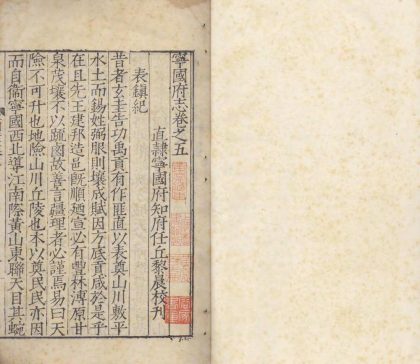 寧國府志卷之五
直隸寧國府知府任丘黎晨校刋
表鎮紀
昔者玄圭告功禹貢有作匪直以表奠山川敷平
水土而錫姓弼服則壤成賦因方底貢咸於是乎
在且先王建邦造邑旣順廼宣必有豐林溥原甘
泉茂壤不以疏鹵故善言疆理者必謹焉易曰天
險不可升也地險山川丘陵也本以奠民民亦因
而自衞寧國西北導江南際黃山東聯天目其蜿